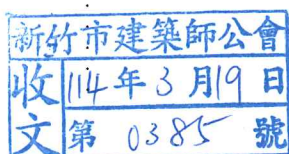 新竹市建築師公會
收文
114年3月19日
第0385號